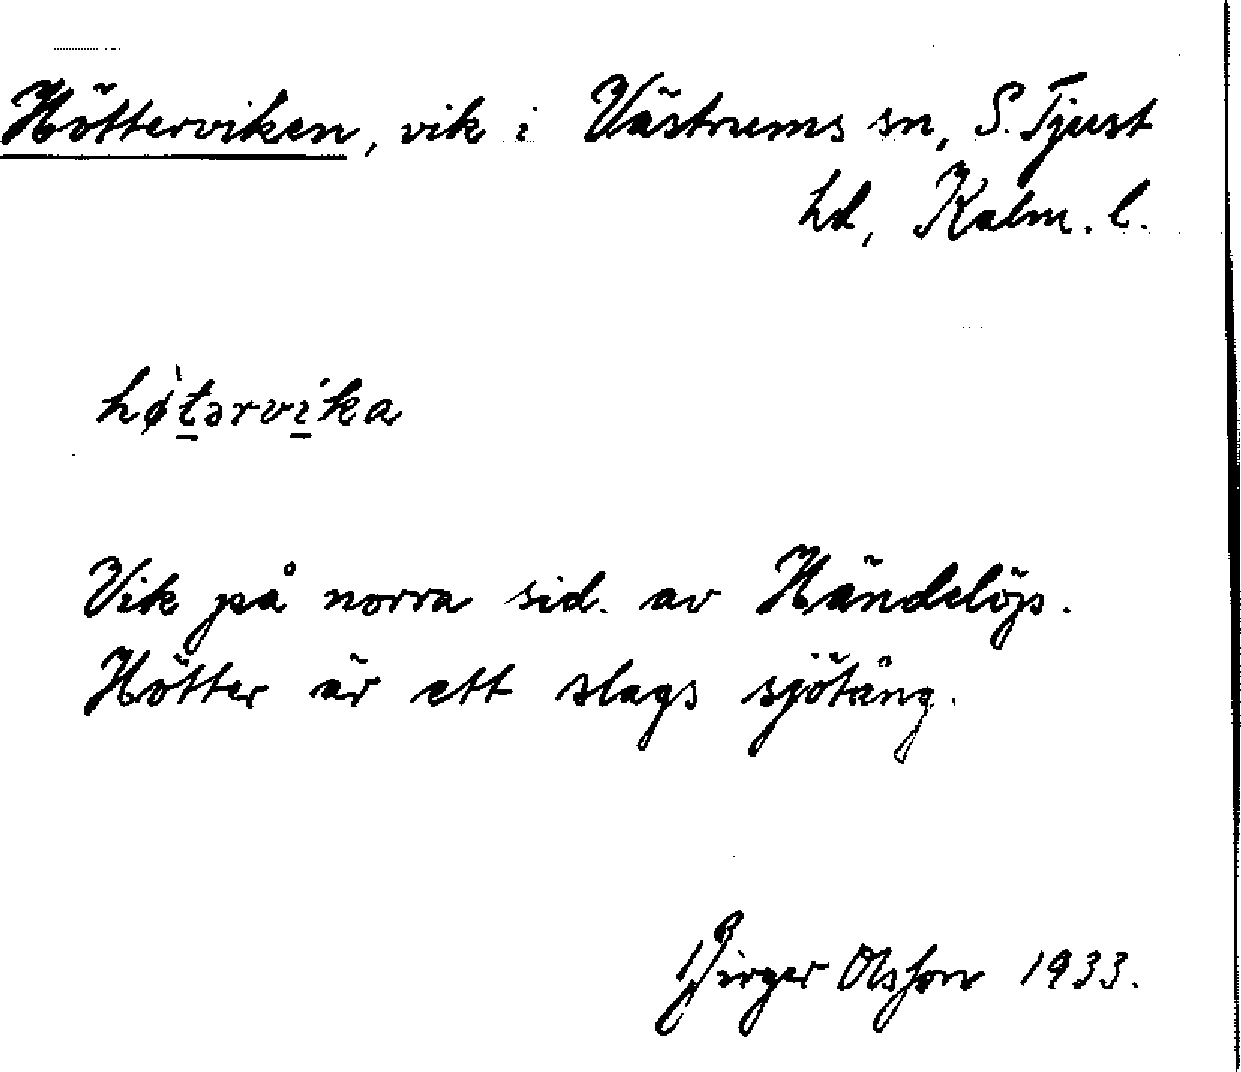 Hötterviken, vik i Västrums sn, S. Tjust
hd, Kalm. l.
hø̀tərvíka
Vik på norra sid. av Händelöp.
Hötter är ett slags sjötång.
Birger Olsson 1933.